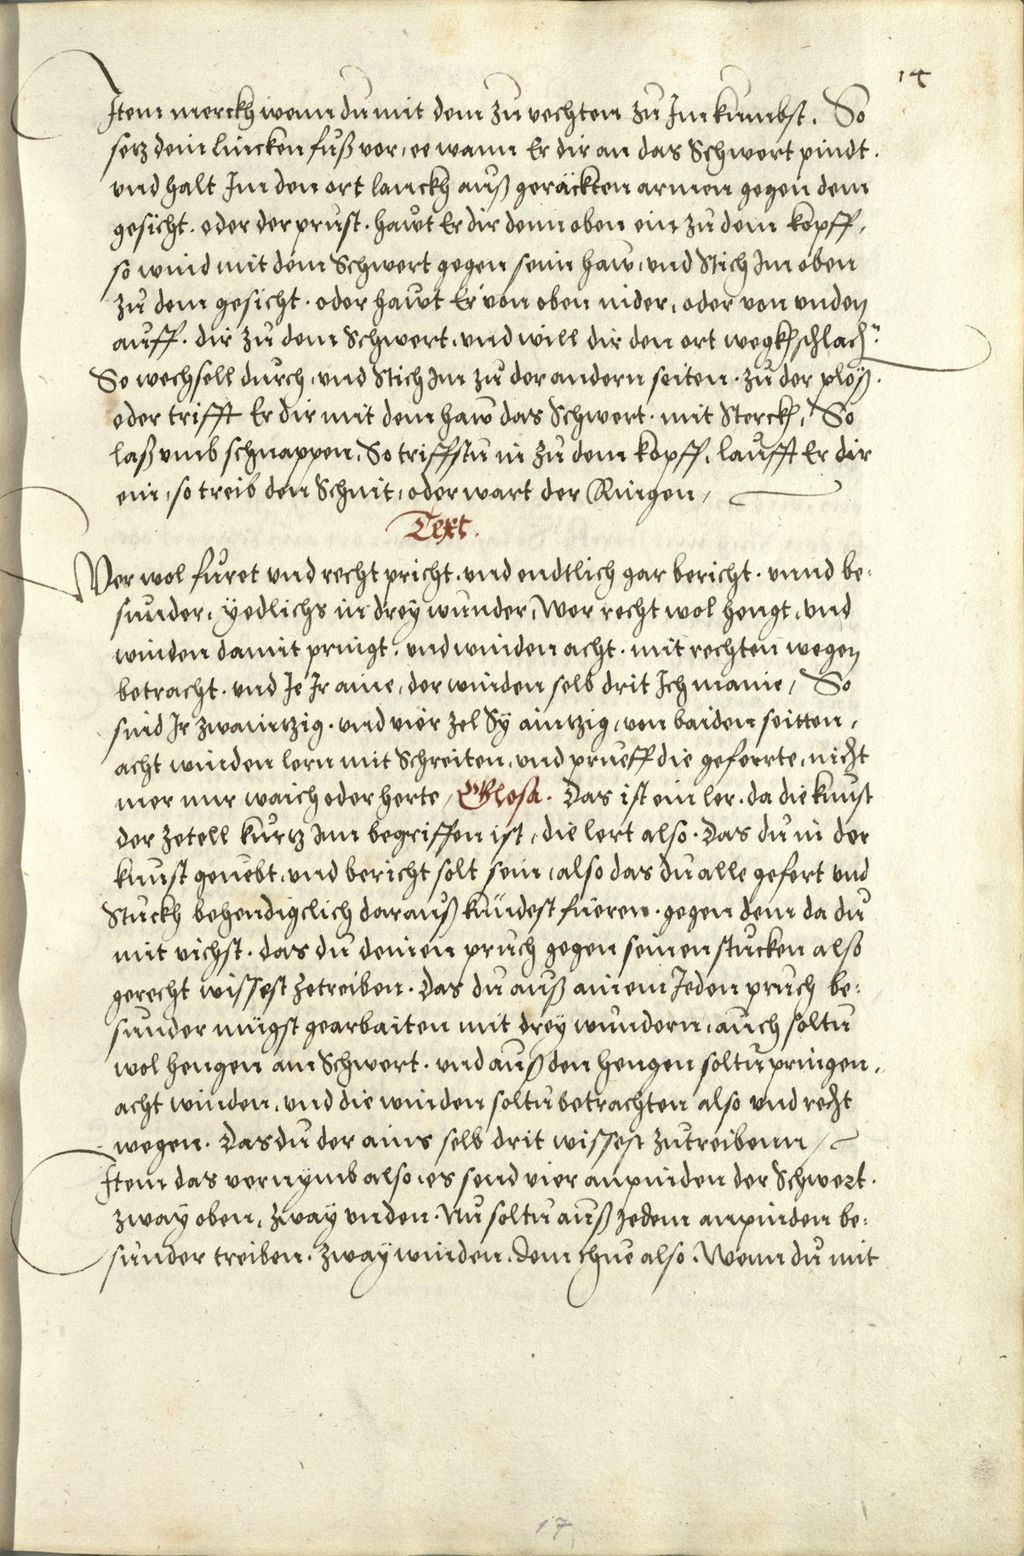 14
Item merckh wenn du mit dem zu vechten zu Im kumbst. So
setz dein lincken fuß vor, ee wann Er dir an das Schwert pindt.
und halt Im den ort lanckh auß geräckten armen gegen dem
gesicht. oder der prust. hawt Er dir denn oben ein zu dem kopff,
so wind mit dem Schwert gegen seim haw, und Stich Im oben
zu dem gesicht. oder hawt Er von oben nider, oder von unden
auff. dir zu dem Schwert, und will dir den ort wegkh schlach~
So wechsell durch, und Stich Im zu der andern seiten. zu der plöß.
oder trifft Er dir mit dem haw das Schwert. mit Sterckh, So
laß umb schnappen, So triffstu in zu dem kopff, laufft Er dir
ein, so treib den Schnit, oder wart der Ringen,
Text.
Wer wol füret und recht pricht. und endtlich gar bericht. unnd be:
sunder, yedlichs in drey wunder, Wer recht wol hengt, und
winden damit pringt. und winden acht. mit rechten wegen
betracht. und Je Ir aine, der winden selb drit Ich maine, So
sind Ir zwaintzig. und vier zel Sy aintzig, von baiden seitten,
acht winden lern mit Schreiten, und prueff die geferrte, nicht
mer nur waich oder herte, Glosa. Das ist ein ler. da die kunst
der zetell kurtz Inn begriffen ist, die lert also. Das du in der
kunst geuebt, und bericht solt sein, also das du alle gefert und
Stuckh behendigclich darauß kündest füeren. gegen dem da du
mit vichst. das du deinen pruch gegen seinen stucken also
gerecht wissest zetreiben. Das du auß ainem Jeden pruch be:
sunder mügst gearbaiten mit drey wundern, auch soltu
wol hengen am Schwert. und auß den hengen soltu pringen,
acht winden, und die winden soltu betrachten also und recht
wegen. Das du der ains selb drit wissest zutreibenn,
Item das vernymb also, es send vier anpinden der Schwert.
zway oben, zway unden. Nu soltu auß Jedem anpinden be:
sunder treiben. zway winden. dem thue also. Wenn du mit
17